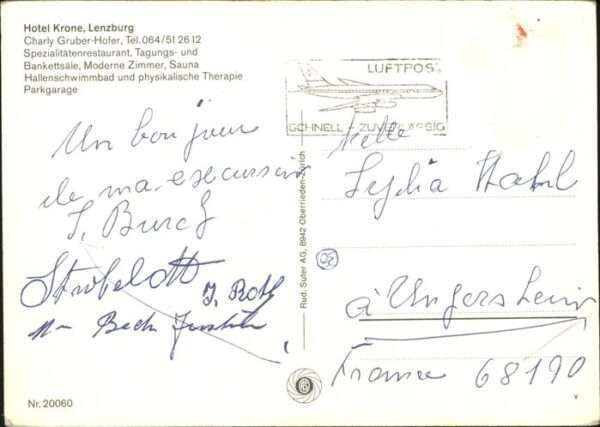 Hotel Krone, Lenzburg
Charly Gruber-Hofer, Tel. 064/51 26 12
Spezialitätenrestaurant, Tagungs- und
Bankettsäle, Moderne Zimmer, Sauna
Hallenschwimmbad und physikalische Therapie
Parkgarage
LUFTPOST
SCHNELL - ZUVERLÄSSIG
Un bonjour
de ma excursion
Strobelott
J. Roth
Nr. 20060
Rud. Suter AG, 8942 Oberrieden-Zürich
Melle
Lydia
à Ungersheim
France 68190